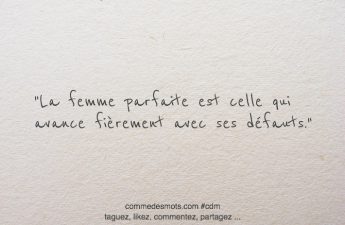 "La femme parfaite est celle qui
avance fièrement avec ses défauts."
commedesmots.com #cdm
taguez, likez, commentez, partagez ...